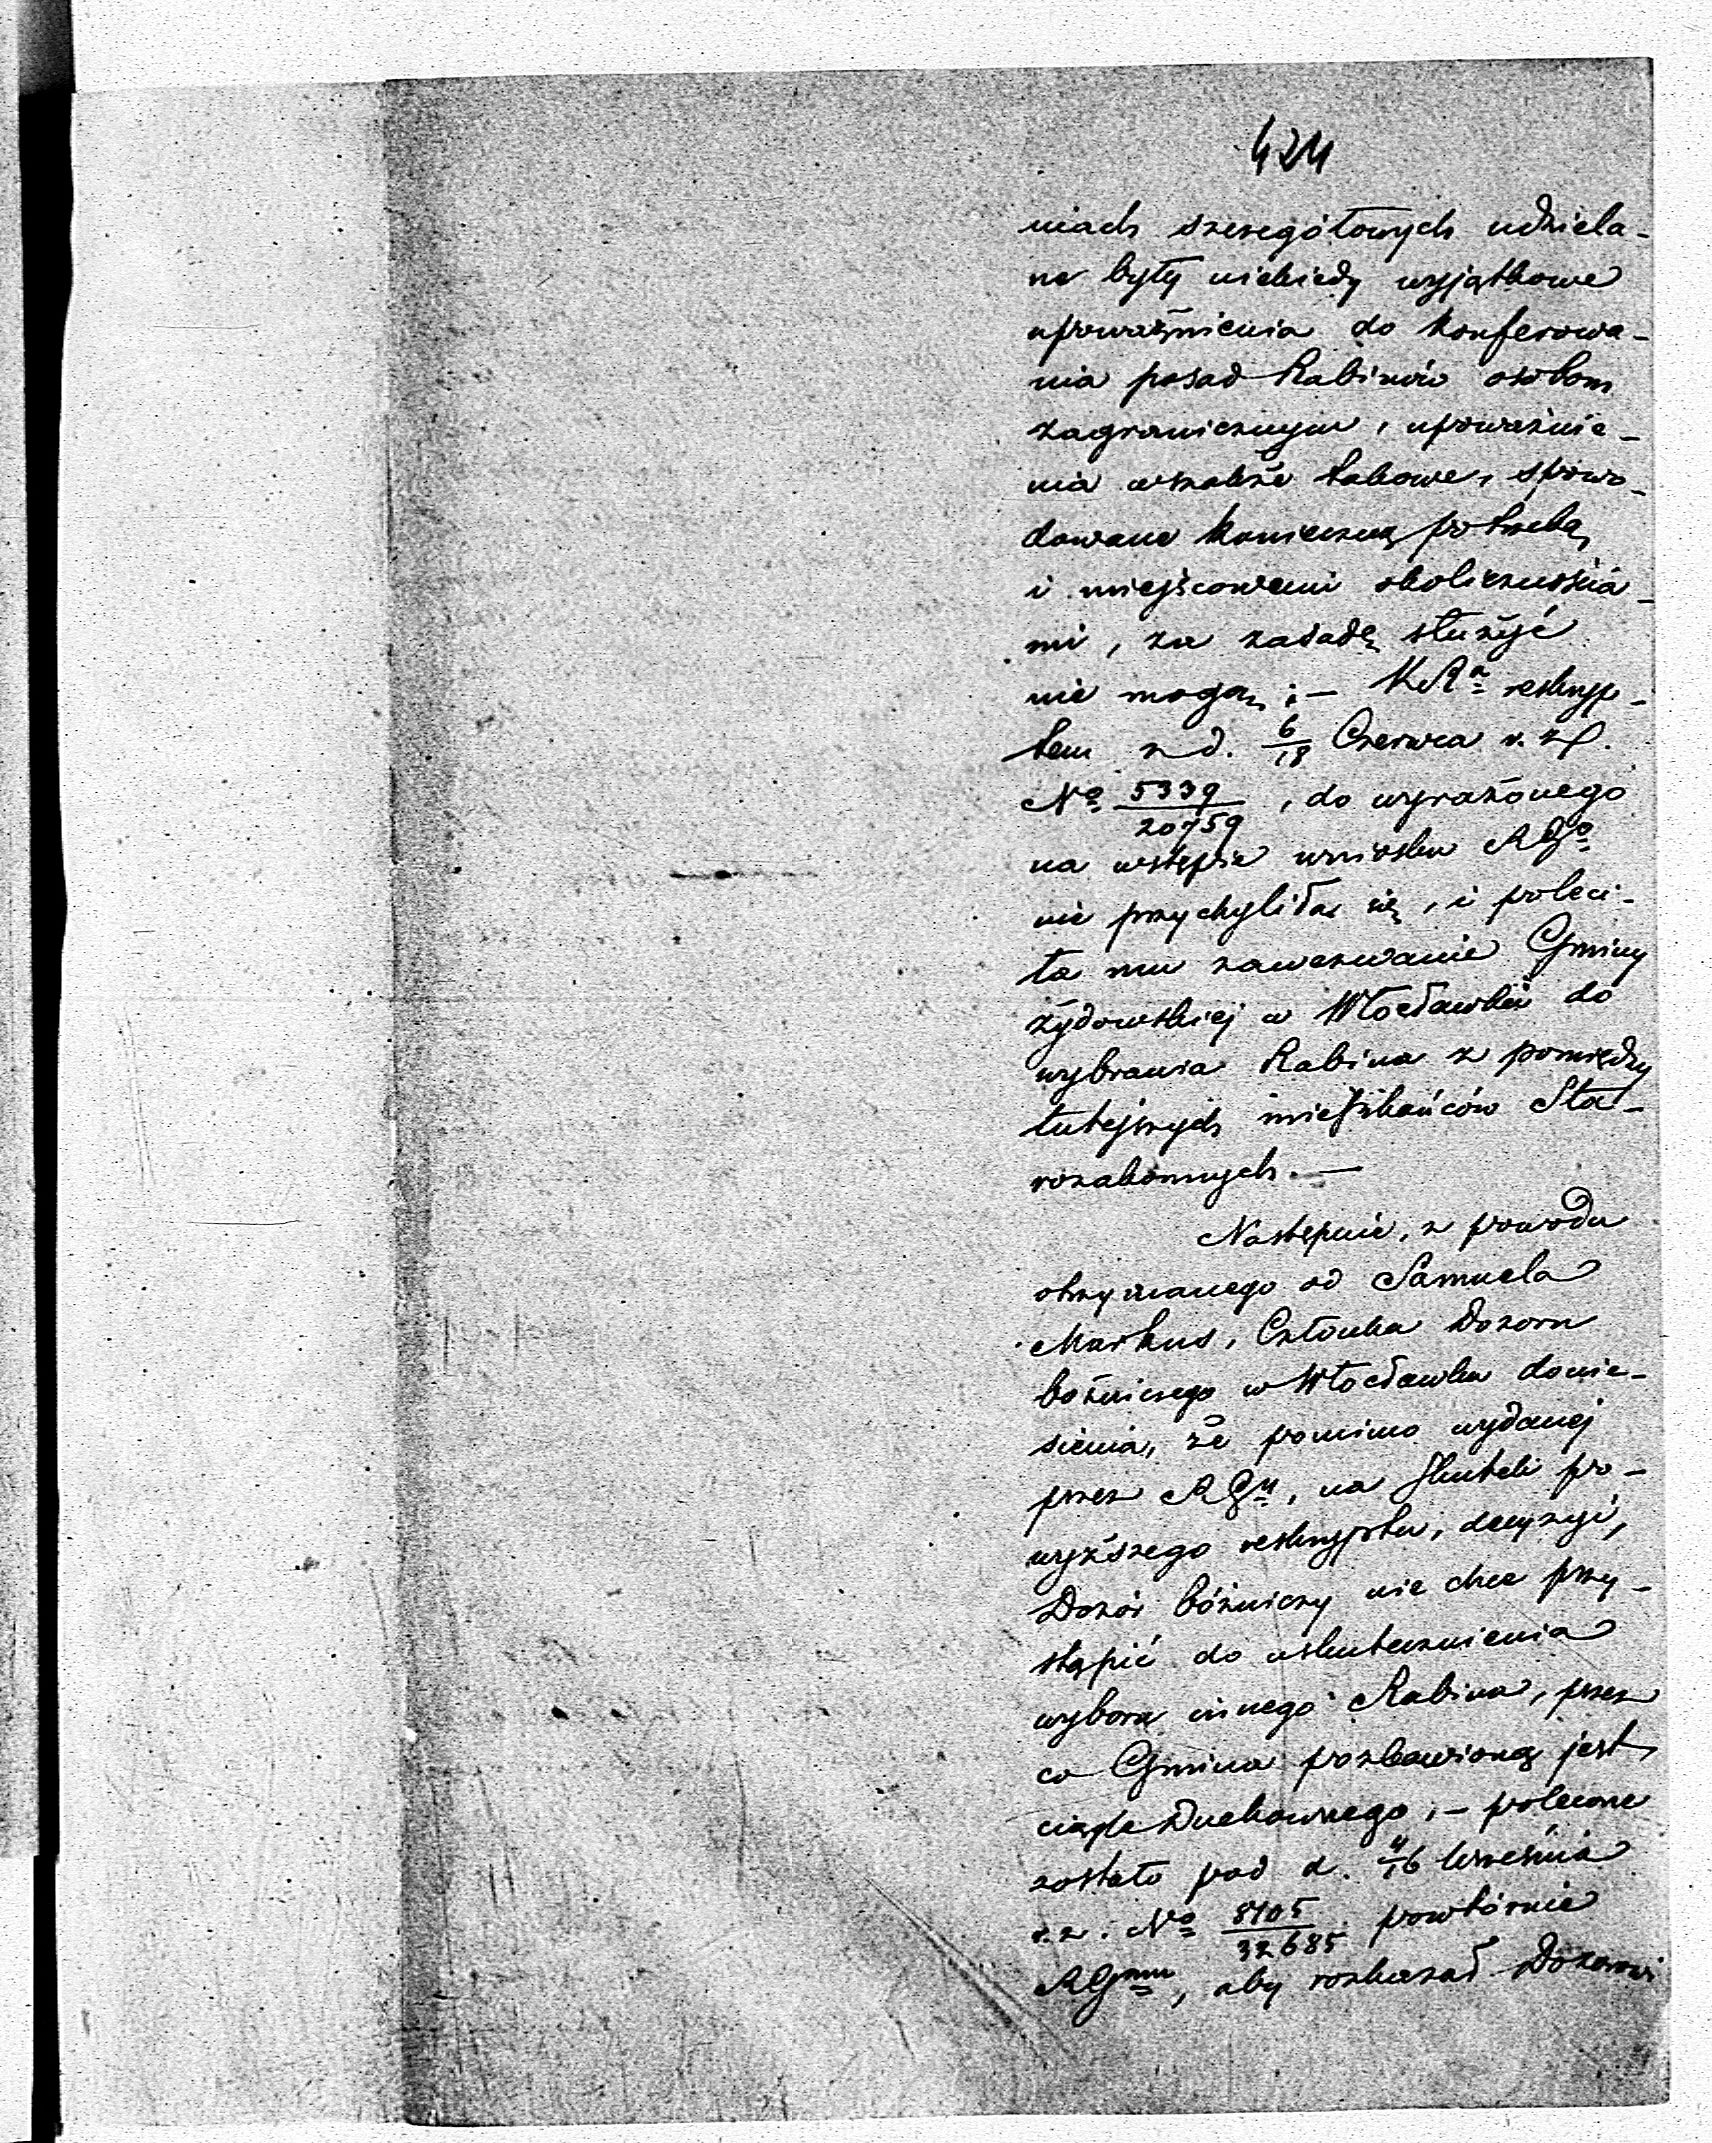 424
niach szczegółowych udziela-
ne były niekiedy wyjątkowe
upoważnienia do konferowa-
nia posad Rabinów osobom
zagranicznym, upoważnie-
nia wszakże takowe, spowo-
dowane konieczną potrzebą
i miejscowemi okolicznościa-
mi, za zasadę służyć
nie mogą; — KRa reskryp-
tem z d. 6/18 Czerwca r. z.
No 5339/20759, do wyrażonego
na wstępie wniosku RGo
nie przychyliła się, i poleci-
ła mu zawezwanie Gminy
żydowskiej w Włocławku do
wybrania Rabina z pomiędzy
tutejszych mieszkańców Sta-
rozakonnych. —
Następnie, z powodu
otrzymanego od Samuela
Markus, Członka Dozoru
bóżniczego w Włocławku donie-
sienia, że pomimo wydanej
przez RGy, na skutek po-
wyższego reskryptu, decyzyi,
Dozór bóżniczy nie chce przy-
stąpić do uskutecznienia
wyboru innego Rabina, przez
co Gmina pozbawioną jest
ciągle Duchownego; — polecone
zostało pod d. 4/16 Września
r. z. No 8105/32685 powtórnie
RGmu, aby rozkazał Dozorowi